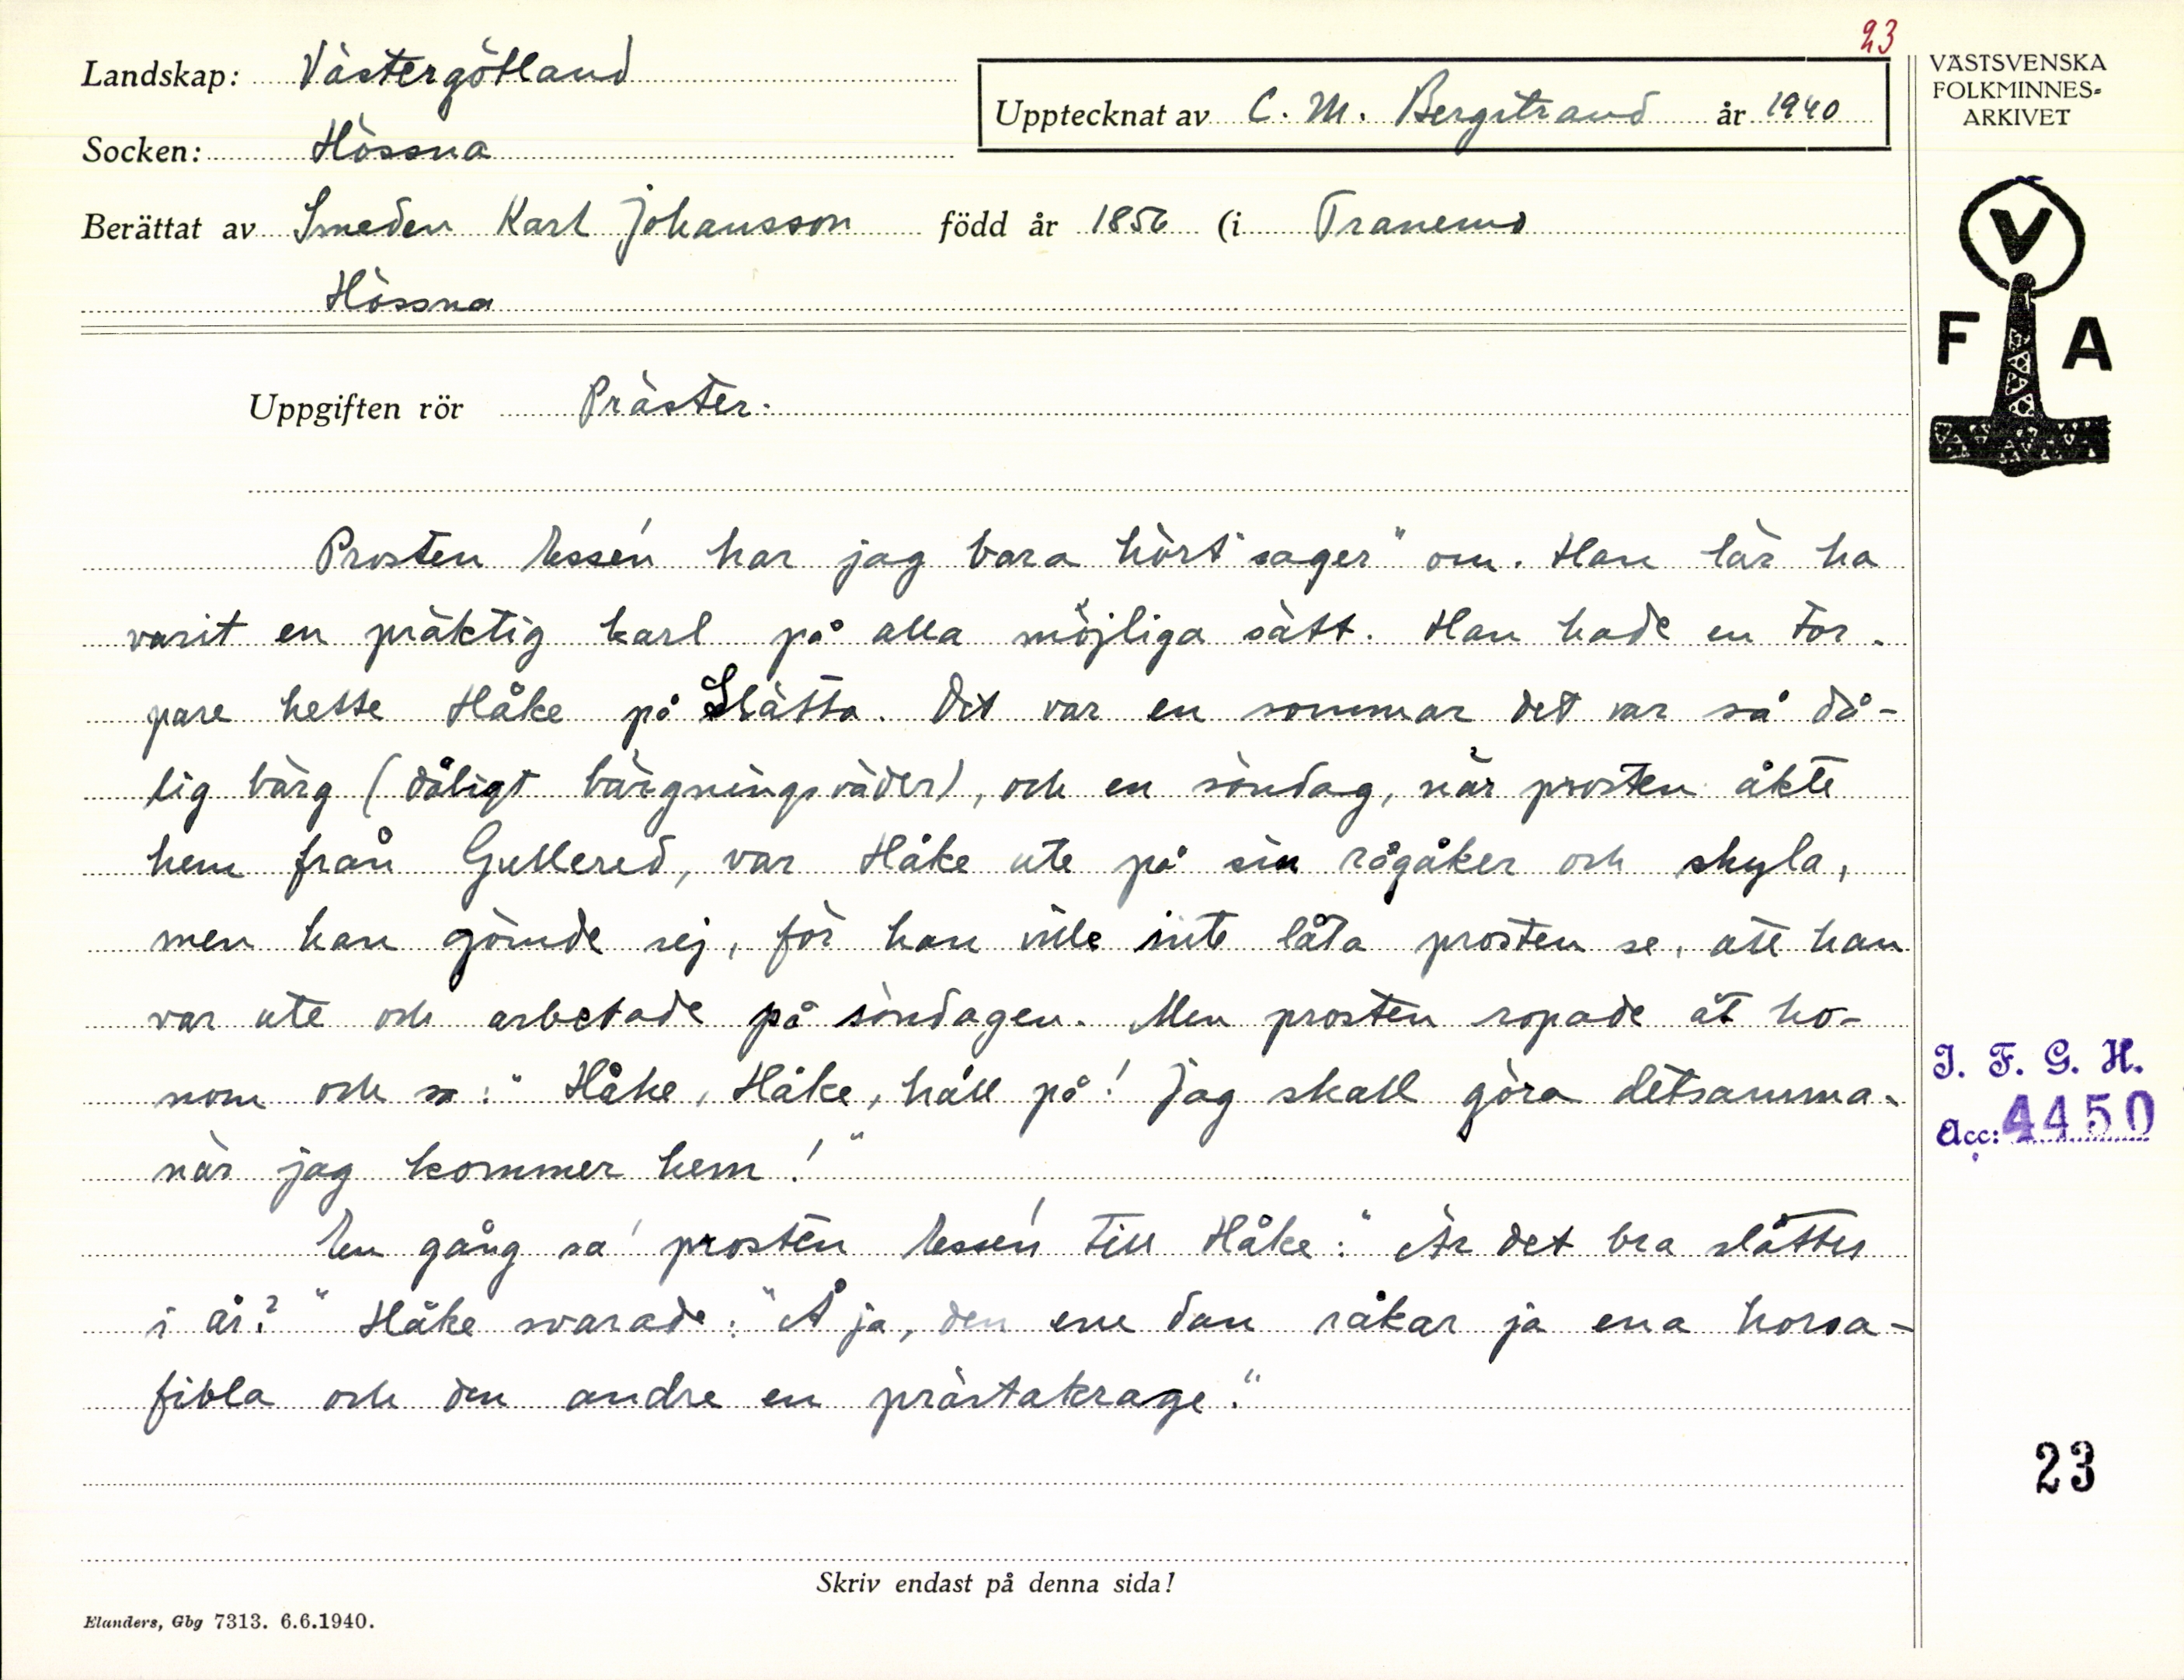 23
Landskap: Västergötland
Upptecknat av C. M. Bergstrand år 1940
VÄSTSVENSKA
FOLKMINNES-
ARKIVET
Socken: Hössna
Berättat av Smeden Karl Johansson född år 1856 (i Tranemo
Hössna
V
F A
Uppgiften rör Präster.
Prosten Essén har jag bara hört "sager" om. Han lär ha
varit en präktig karl på alla möjliga sätt. Han hade en tor-
pare hette Håke på Slätta. Det var en sommar det var så då-
lig bärg (dåligt bärgningsväder), och en söndag, när prosten åkte
hem från Gullered, var Håke ute på sin rågåker och skyla,
men han gömde sej, för han ville inte låta prosten se, att han
var ute och arbetade på söndagen. Men prosten ropade åt ho-
nom och sa: "Håke, Håke, håll på! Jag skall göra detsamma,
när jag kommer hem!"
En gång sa' prosten Essén till Håke: "Är det bra slåtter
i år?" Håke svarade: "Å ja, den ene dan råkar ja ena horsa-
fibla och den andre en prästakrage."
I. F. G. H.
Acc: 4450
23
Skriv endast på denna sida!
Elanders, Gbg 7313. 6.6.1940.